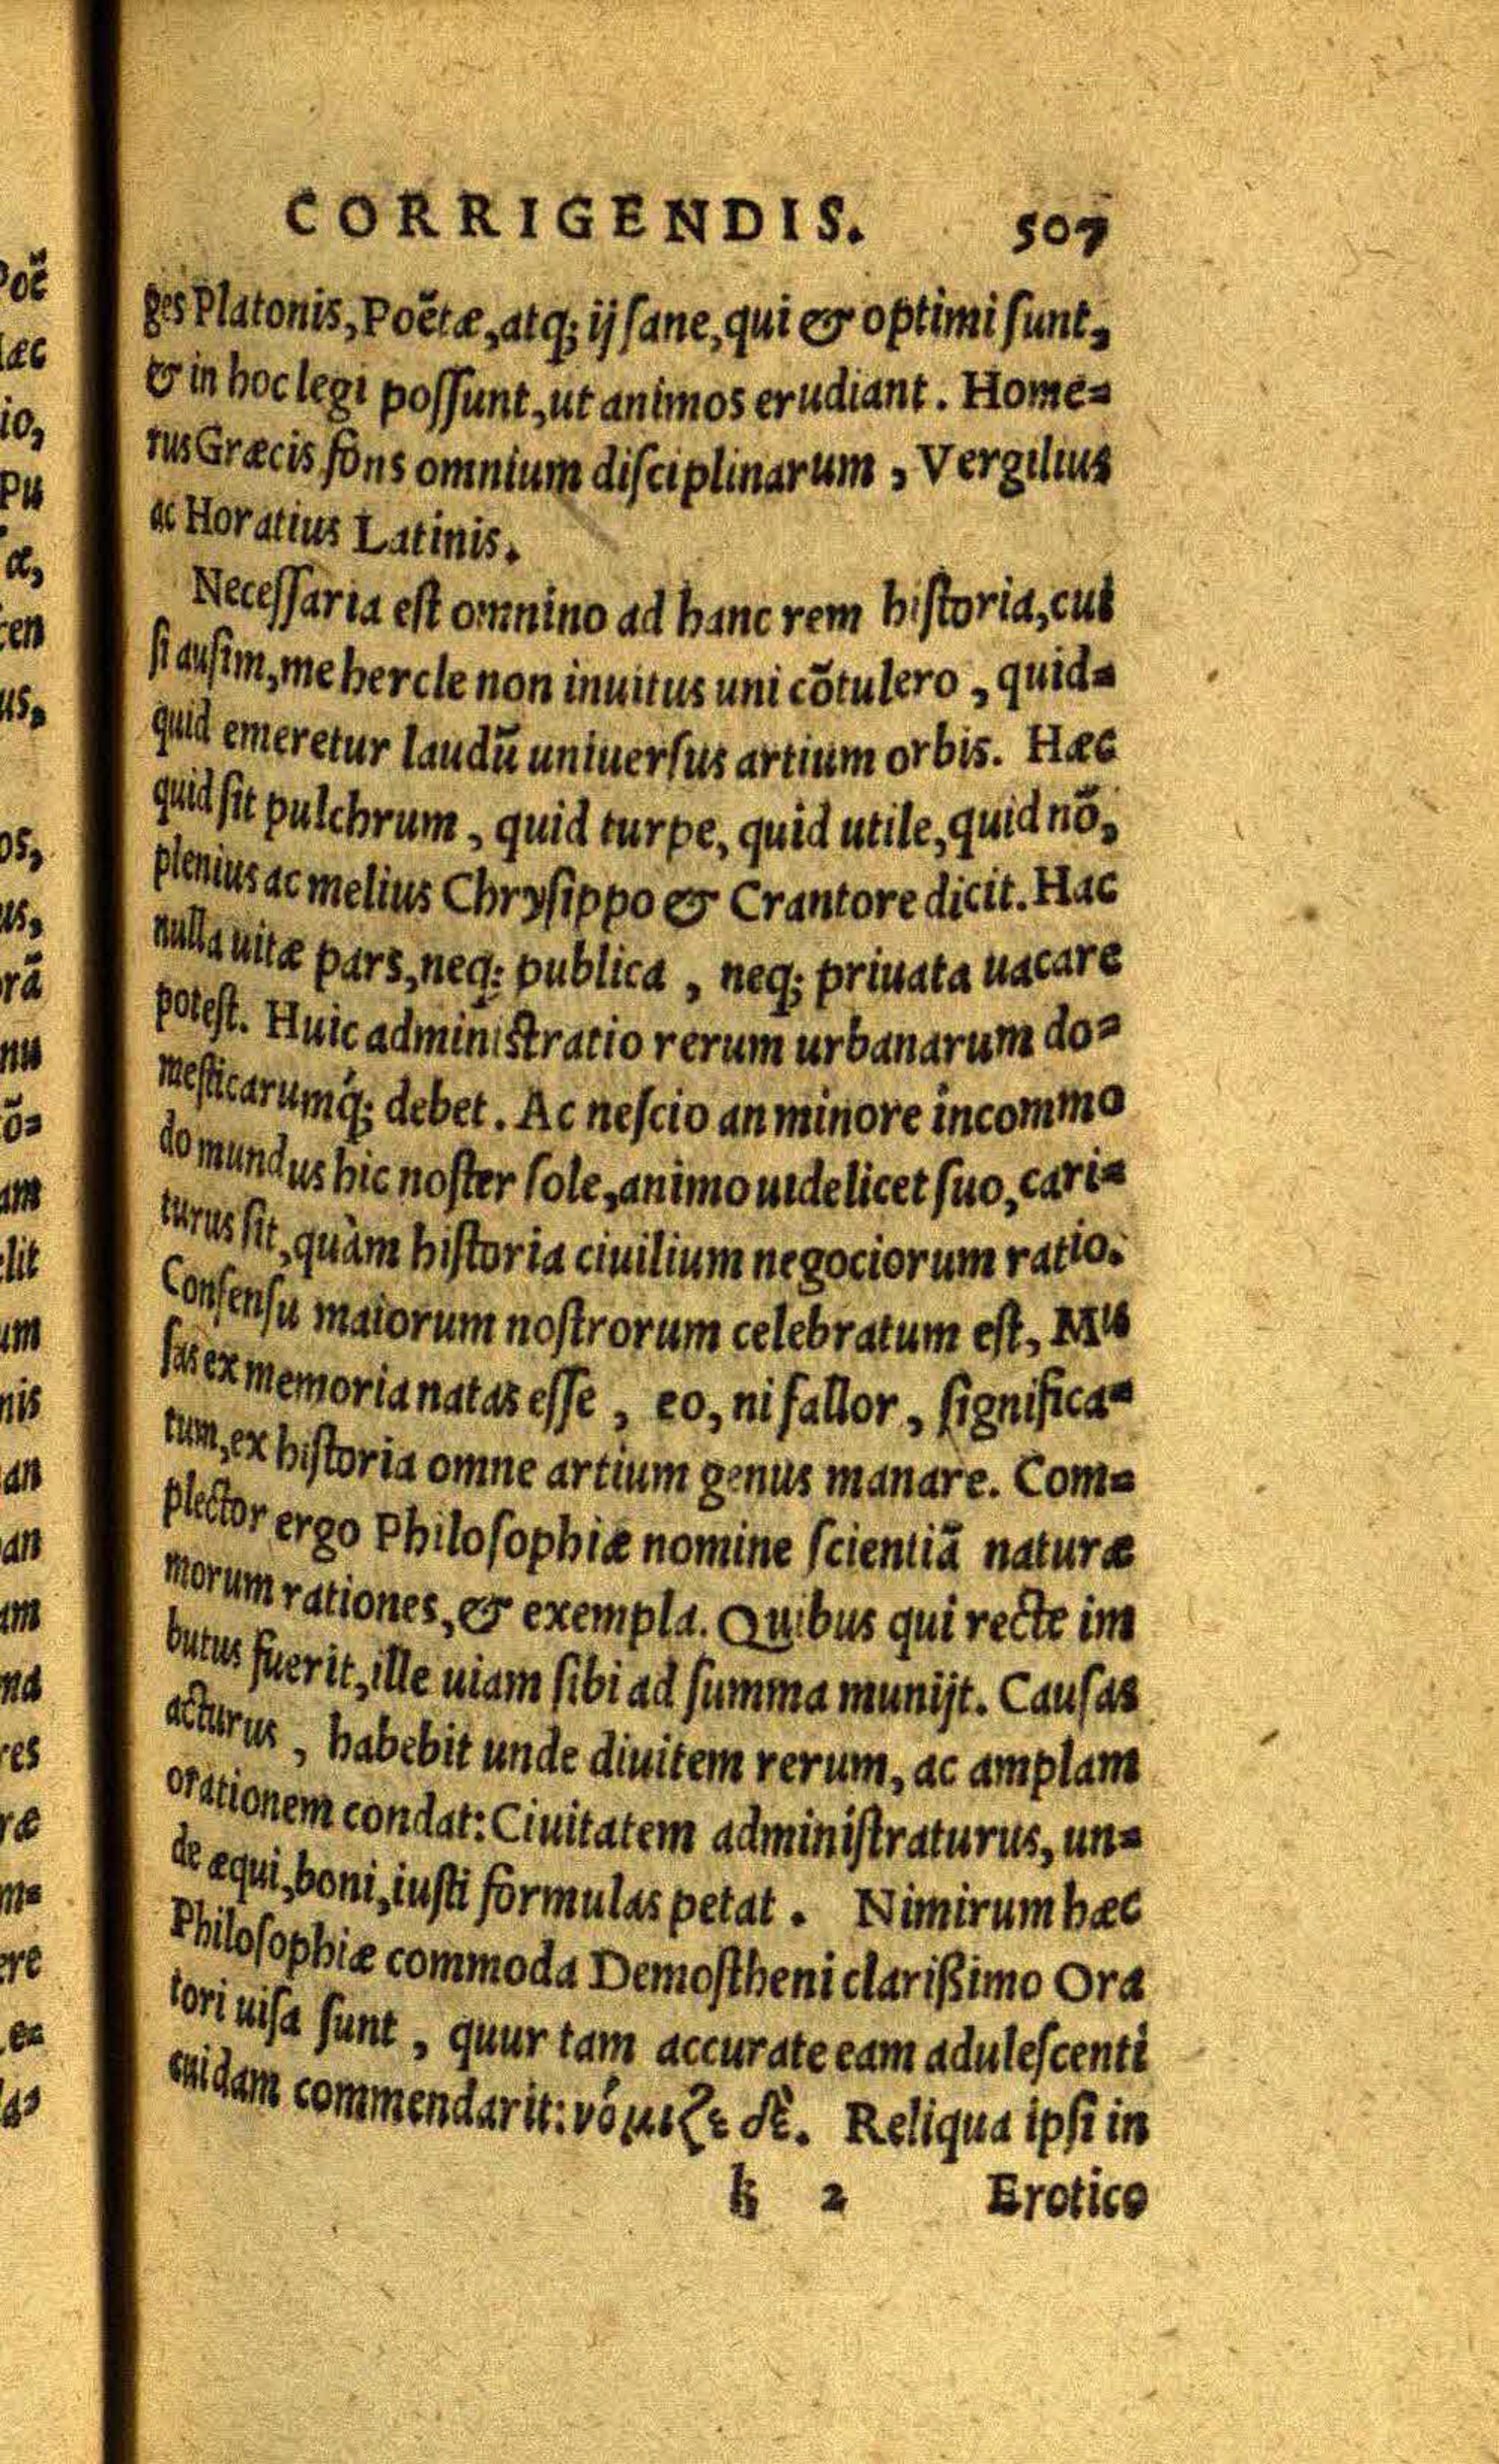 CORRIGENDIS. 507
ges Platonis, Poëtæ, atq; ij sane, qui & optimi sunt,
& in hoc legi possunt, ut animos erudiant. Home=
rus Græcis fons omnium disciplinarum, Vergilius
ac Horatius Latinis.
Necessaria est omnino ad hanc rem historia, cui
si ausim, me hercle non inuitus uni cōtulero, quid=
quid emeretur laudū uniuersus artium orbis. Hæc
quid sit pulchrum, quid turpe, quid utile, quid nō,
plenius ac melius Chrysippo & Crantore dicit. Hac
nulla uitæ pars, neq; publica, neq; priuata uacare
potest. Huic administratio rerum urbanarum do=
mesticarumq́; debet. Ac nescio an minore incommo
do mundus hic noster sole, animo uidelicet suo, cari=
turus sit, quàm historia ciuilium negociorum ratio.
Consensu maiorum nostrorum celebratum est, Mu
sas ex memoria natas esse, eo, ni fallor, significa=
tum, ex historia omne artium genus manare. Com=
plector ergo Philosophiæ nomine scientiā naturæ
morum rationes, & exempla. Quibus qui recte im
butus fuerit, ille uiam sibi ad summa munijt. Causas
acturus, habebit unde diuitem rerum, ac amplam
orationem condat: Ciuitatem administraturus, un=
de æqui, boni, iusti formulas petat. Nimirum hæc
Philosophiæ commoda Demostheni clarißimo Ora
tori uisa sunt, quur tam accurate eam adulescenti
cuidam commendarit: νόμιζε δὲ. Reliqua ipsi in
k 2 Erotico